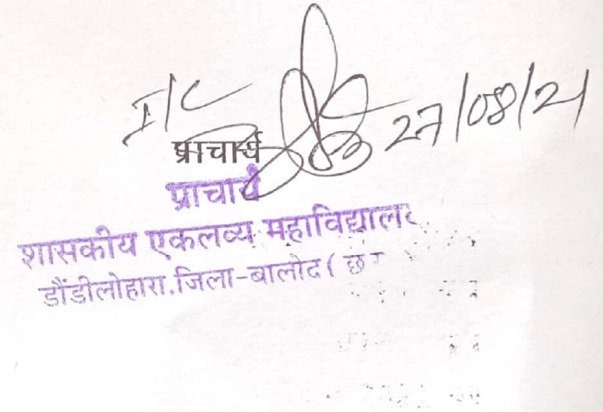 I/C 27/08/21
प्राचार्य
प्राचार्य
शासकीय एकलव्य महाविद्यालय
डौंडीलोहारा.जिला-बालोद ( छ